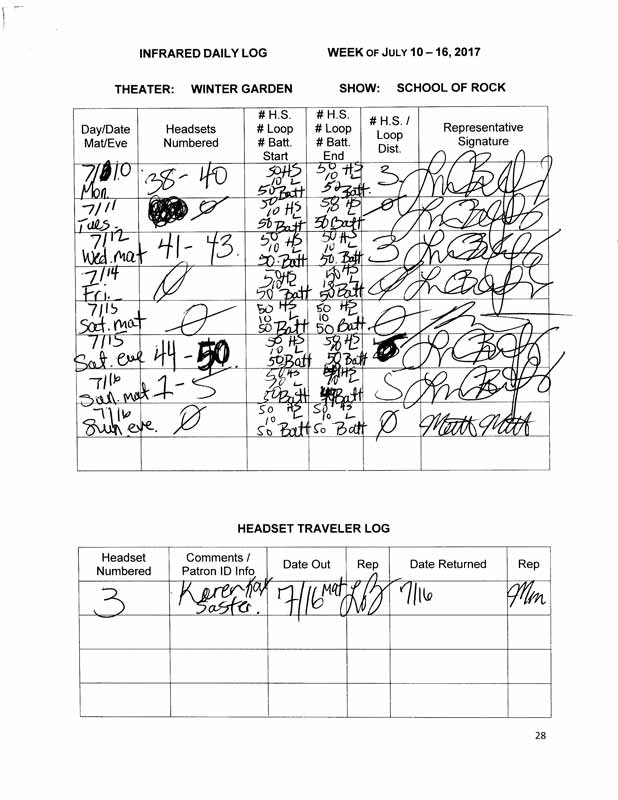 INFRARED DAILY LOG WEEK OF JULY 10 – 16, 2017
THEATER: WINTER GARDEN SHOW: SCHOOL OF ROCK
Day/Date Mat/Eve
Headsets Numbered
# H.S. # Loop # Batt. Start
# H.S. # Loop # Batt. End
# H.S. / Loop Dist.
Representative Signature
7/10 Mon. 38 - 40 50 HS 10 L 50 Batt 50 HS 10 L 50 Batt. 3
7/11 Tues. 0 50 HS 10 L 50 Batt 50 HS 10 L 50 Batt 0
7/12 Wed. mat 41 - 43. 50 HS 10 L 50 Batt 50 HS 10 L 50 Batt 3
7/14 Fri. 0 50 HS 10 L 50 Batt 50 HS 10 L 50 Batt 0
7/15 Sat. mat 0 50 HS 10 L 50 Batt 50 HS 10 L 50 Batt 0
7/15 Sat. eve 44 - 50 50 HS 10 L 50 Batt 50 HS 10 L 50 Batt
7/16 Sun. mat 1 - 5 50 HS 10 L 50 Batt HS 10 L Batt 5
7/16 Sun eve. 0 50 HS 10 L 50 Batt 50 HS 10 L 50 Batt 0 Matt
HEADSET TRAVELER LOG
Headset Numbered
Comments / Patron ID Info
Date Out
Rep
Date Returned
Rep
3 Karen 7/16 mat LB 7/16 Mm
28